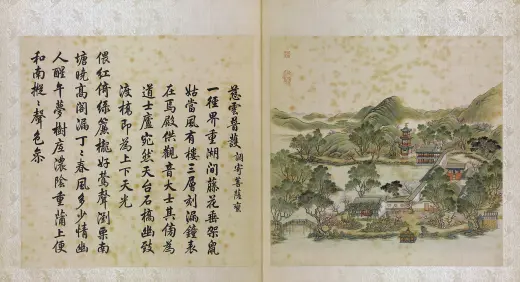 慈雲普護 調寄菩薩蠻
一徑界重湖間藤花垂架鼠
姑當風有樓三層刻漏鐘表
在焉殿供觀音大士其傍為
道士廬宛然天台石橋幽致
渡橋即為上下天光
偎紅倚綠簾櫳好鶯聲瀏栗南
塘曉高閣漏丁〻春風多少情幽
人醒午夢樹底濃陰重蒲上便
和南樅〻聲色參